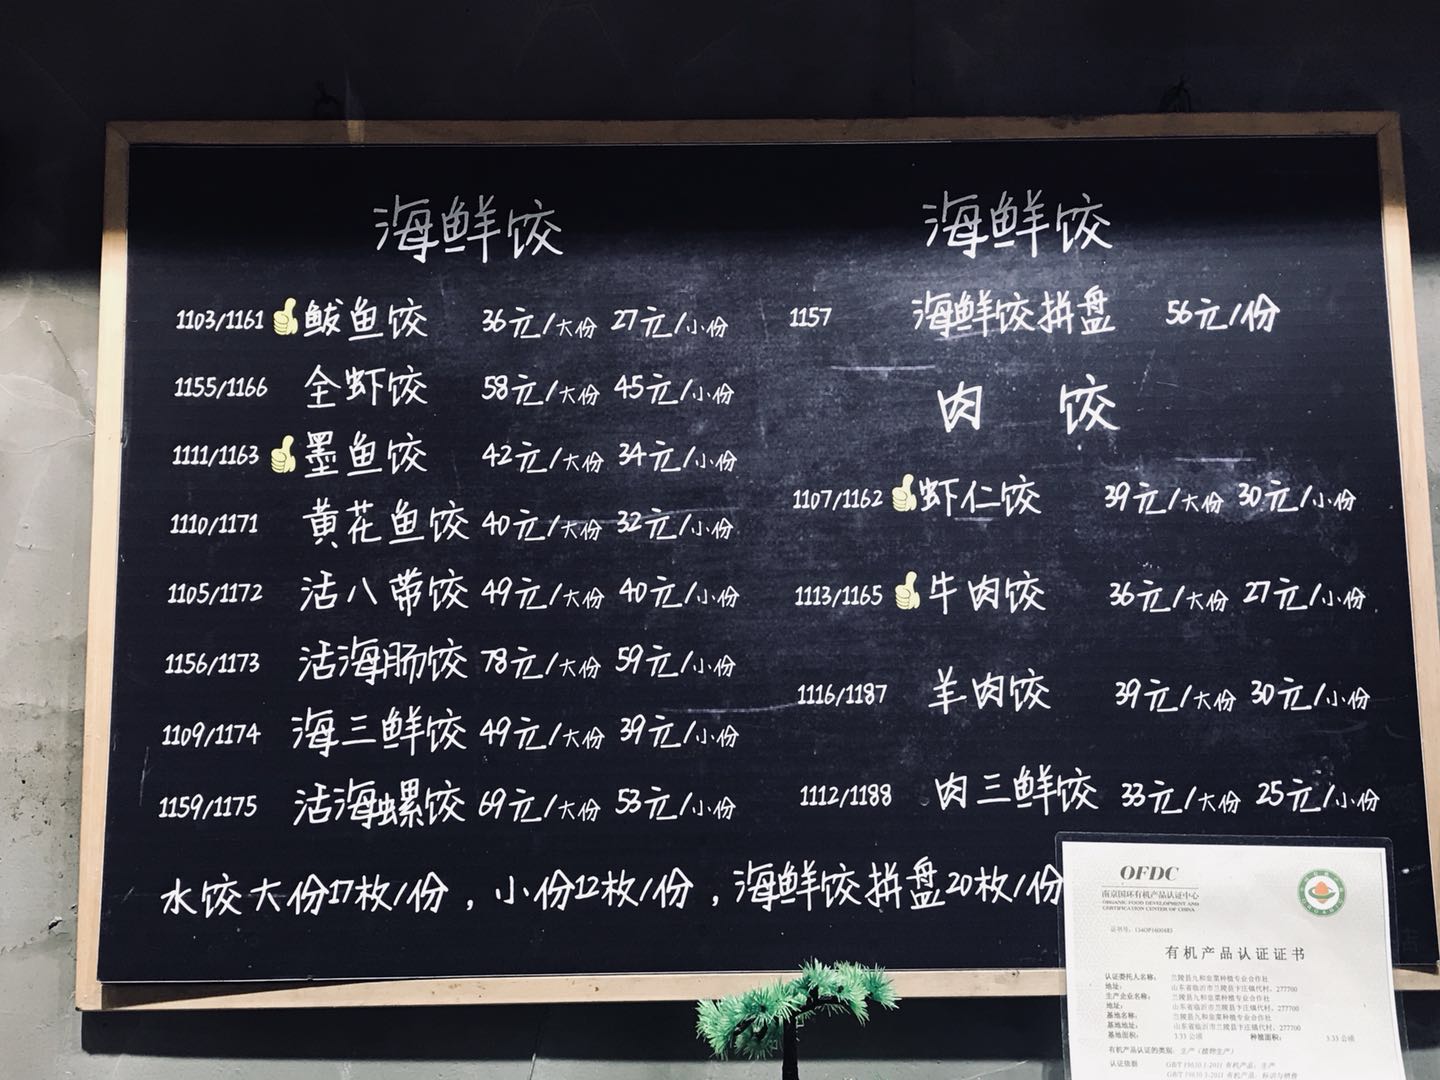 海鲜饺
1103/1161 鲅鱼饺 36元/大份 27元/小份
1155/1166 全虾饺 58元/大份 45元/小份
1111/1163 墨鱼饺 42元/大份 34元/小份
1110/1171 黄花鱼饺 40元/大份 32元/小份
1105/1172 活八带饺 49元/大份 40元/小份
1156/1173 活海肠饺 78元/大份 59元/小份
1109/1174 海三鲜饺 49元/大份 39元/小份
1159/1175 活海螺饺 69元/大份 53元/小份
海鲜饺
1157 海鲜饺拼盘 56元/份
肉 饺
1107/1162 虾仁饺 39元/大份 30元/小份
1113/1165 牛肉饺 36元/大份 27元/小份
1116/1187 羊肉饺 39元/大份 30元/小份
1112/1188 肉三鲜饺 33元/大份 25元/小份
水饺大份17枚/份，小份12枚/份，海鲜饺拼盘20枚/份
OFDC
南京国环有机产品认证中心
ORGANIC FOOD DEVELOPMENT AND
CERTIFICATION CENTER OF CHINA
证书号：134OP1600485
有机产品认证证书
认证委托人名称： 兰陵县九和韭菜种植专业合作社
地址： 山东省临沂市兰陵县卞庄镇代村，277700
生产企业名称： 兰陵县九和韭菜种植专业合作社
地址： 山东省临沂市兰陵县卞庄镇代村，277700
基地名称： 兰陵县九和韭菜种植专业合作社
基地地址： 山东省临沂市兰陵县卞庄镇代村，277700
基地面积： 3.33 公顷 种植面积： 3.33 公顷
有机产品认证的类别：生产（植物生产）
认证依据 GB/T 19630.1-2011 有机产品：生产
GB/T 19630.3-2011 有机产品：标识与销售